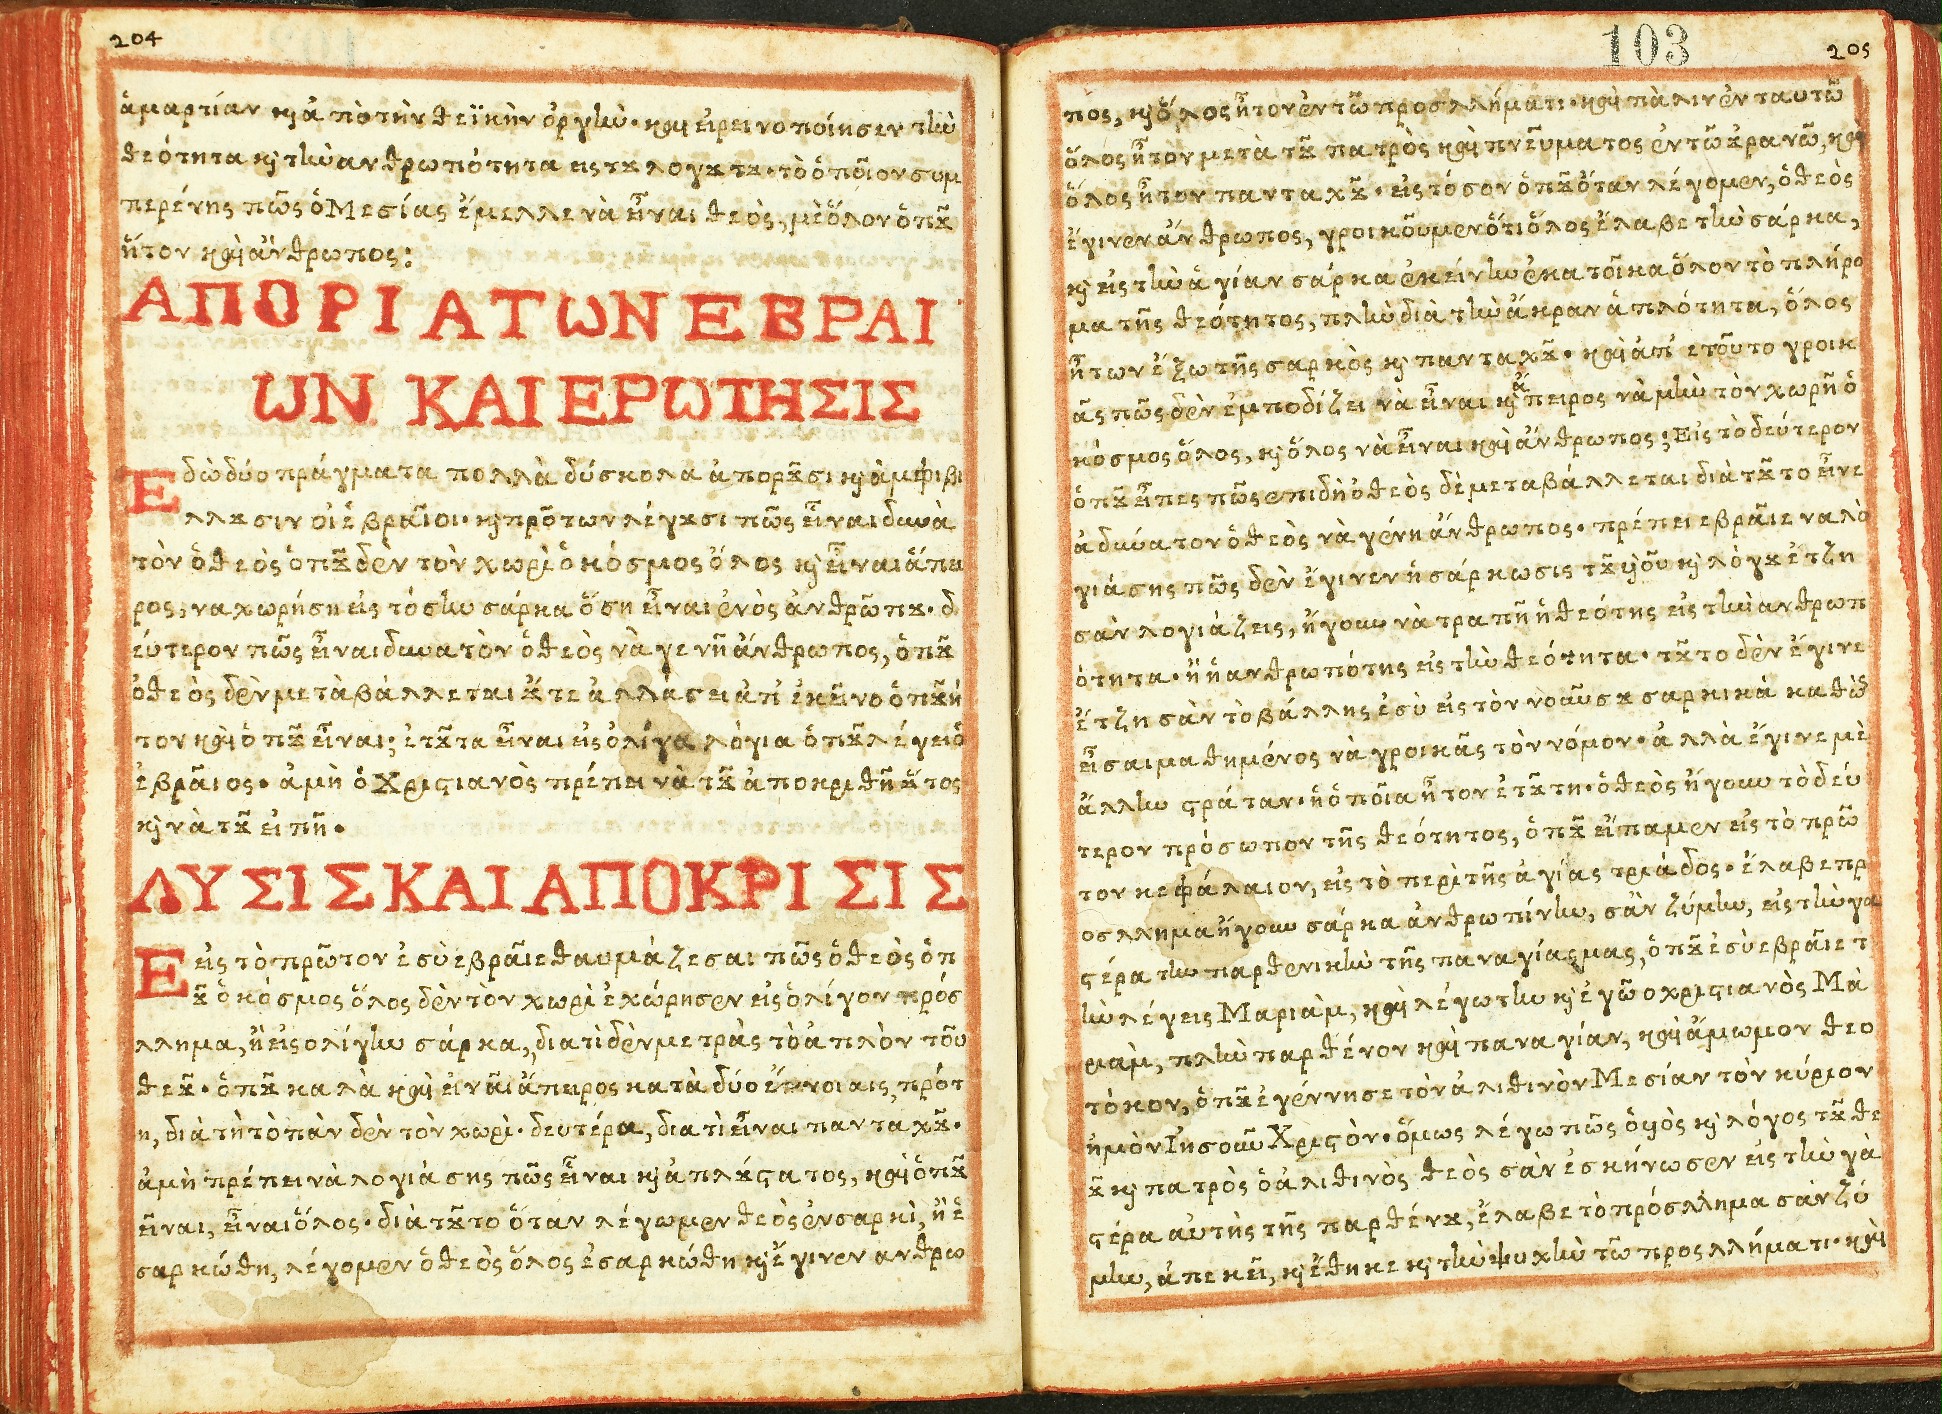 204
ἁμαρτίαν κὶ ἀπὸ τὴν θεϊκὴν ὀργὴν· καὶ εἰρεινοποίησεν τὴν
θεότητα κὶ τὴν ανθρωπότητα εις τȣ λογȣ τȣ· τὸ ὁποῖον συμ
περένης πῶς ὁ Μεσίας ἔμελλε νὰ εἶναι θεὸς, μὲ ὅλον ὁπȣ͂
ἤτον καὶ ἄνθρωπος:
ΑΠΟΡΙΑ ΤΩΝ ΕΒΡΑΙ
ΩΝ ΚΑΙ ΕΡΩΤΗΣΙΣ
Εδὼ δύο πράγματα πολλὰ δύσκολα ἀπορȣ͂σι κὶ ἀμφιβι
λλȣσιν οἱ ἑβραῖοι· κὶ πρῶτων λέγȣσι πῶς εἶναι δυνὰ
τὸν ὁ θεὸς ὁπȣ͂ δὲν τὸν χωρὶ ὁ κόσμος ὅλος κὶ εἶναι ἄπει
ρος; να χωρήση εἰς τόσην σάρκα ὅση εἶναι ἑνὸς ἀνθρώπȣ· δ
εύτερον πῶς εἶναι δυνατὸν ὁ θεὸς νὰ γενῆ ἄνθρωπος, ὁπȣ͂
ὁ θεὸς δὲν μετὰβάλλεται ȣ̓́τε ἀλλάσει ἀπ' ἐκεῖνο ὁπȣ͂ ἤ
τον καὶ ὁπȣ͂ εἶναι; ἐτȣ͂τα εἶναι εἰς ὀλίγα λόγια ὁπȣ͂ λέγει ὁ
ἑβραῖος· ἀμὴ ὁ Χριστιανὸς πρέπει νὰ τȣ͂ ἀποκριθῆ ȣ̔́τος
κὶ νὰ τȣ͂ εἰπῆ·
ΛΥΣΙΣ ΚΑΙ ΑΠΟΚΡΙΣΙΣ
Εεἰς τὸ πρῶτον ἐσὺ εβραῖε θαυμάζεσαι πῶς ὁ θεὸς ὁπ
ȣ͂ ὁ κόσμος ὅλος δὲν τὸν χωρὶ ἐχώρησεν εἰς ὀλίγον πρόσ
λλημα, ἢ εἰς ολίγην σάρκα, διατὶ δὲν μετρὰς τὸ ἁπλὸν τοῦ
θεȣ͂· ὁπȣ͂ καλὰ καὶ εἶναι ἄπειρος κατὰ δύο ἔννοιαις, πρότ
η, διὰ τὴ τὸ πὰν δὲν τὸν χωρὶ· δευτέρα, διατὶ εἶναι πανταχȣ͂·
ἀμὴ πρέπει νὰ λογιάσης πῶς εἶναι κὶ ἁπλȣ́στατος, καὶ ὁπȣ͂
εἶναι, εἶναι ὅλος· διὰ τȣ͂το ὅταν λέγωμεν θεὸς ἐν σαρκὶ, ἢ ἐ
σαρκώθη, λέγομεν ὁ θεὸς ὅλος ἐσαρκώθη κὶ ἔγινεν ανθρω
103
205
πος, κὶ ὅλος ἦτον ἐν τῶ προσλλήματι· καὶ πὰλιν ἐν ταυτῶ
ὅλος ἦτον μετὰ τȣ͂ πατρὸς καὶ πνεύματος ἐν τῶ ȣ̓ρανῶ, καὶ
ὅλος ἦτον πανταχȣ͂· εἰς τόσον ὁπȣ͂ ὅταν λέγομεν, ὁ θεὸς
ἔγινεν ἄνθρωπος, γροικοῦμεν ὅτι ὅλος ἔλαβε τὴν σάρκα,
κὶ εἰς τὴν ἁγίαν σάρκα ἐκείνην ἐκατοῖκα ὅλον τὸ πλήρο
μα τῆς θεότητος, πλὴν διὰ τὴν ἄκραν ἁπλότητα, ὅλος
ἦτων ἔξω τῆς σαρκὸς κὶ πανταχȣ͂· καὶ ἀπ' ετοῦτο γροικ
ᾶς πῶς δὲν ἐμποδίζει νὰ εἶναι κὶ ἄπειρος νὰ μὴν τὸν χωρῆ ὁ
κόσμος ὅλος, κὶ ὅλος νὰ εἶναι καὶ ἄνθρωπος; Εἰς τὸ δεύτερον
ὁπȣ͂ εἶπες πῶς επιδὴ ὁ θεὸς δὲ μεταβάλλεται διὰ τȣ͂το εἶνε
ἀδυνατον ὁ θεὸς νὰ γένη ἄνθρωπος· πρέπει εβραῖε να λο
γιάσης πῶς δὲν ἔγινεν ἡ σάρκωσις τȣ͂ υἱοῦ κὶ λόγȣ ἔτζη
σὰν λογιάζεις, ἤγουν νὰ τραπῆ ἡ θεότης εἰς τὴν ανθρωπ
ότητα· ἢ ἡ ανθρωπότης εἰς τὴν θεότητα· τȣ͂το δὲν ἔγινε
ἔτζη σὰν τὸ βάλλης ἐσὺ εἰς τὸν νοῦν σȣ σαρκικὰ καθὼς
εἶσαι μαθημένος νὰ γροικᾶς τὸν νόμον· ἀλλὰ ἔγινε μὲ
ἄλλην στράταν· ἡ ὁποῖα ἦτον ἐτȣ͂τη· ὁ θεὸς ἤγουν τὸ δεύ
τερον πρόσωπον τῆς θεότητος, ὁπȣ͂ εἴπαμεν εἰς τὸ πρῶ
τον κεφάλαιον, εἰς τὸ περὶ τῆς ἁγίας τριάδος· ἔλαβε πρ
οσλλημα ἤγουν σάρκα ἀνθρωπίνην, σὰν ζύμην, εἰς τὴν γα
στέρα την παρθενικὴν τῆς παναγίας μας, ὁπȣ͂ ἐσὺ εβραῖε τ
ὴν λέγεις Μαριὰμ, καὶ λέγω την κὶ ἐγὼ ο χριστιανὸς Μα
ριὰμ, πλὴν παρθένον καὶ παναγίαν, καὶ ἄμωμον θεο
τόκον, ὁπȣ͂ ἐγέννησε τὸν ἀλιθινὸν Μεσίαν τὸν κύριον
ἡμὸν Ιησοῦν Χριστὸν· ὅμως λέγω πῶς ὁ υἱὸς κὶ λόγος τȣ͂ θε
ȣ͂ κὶ πατρὸς ὁ ἀλιθινὸς θεὸς σὰν ἐσκήνωσεν εἰς τὴν γα
στέρα αὐτὴς τῆς παρθένȣ, ἔλαβε τὸ πρόσλλημα σὰν ζύ
μην, ἀπεκεῖ, κὶ ἔθηκε κὶ τὴν ψυχὴν τῶ προσλλήματι· καὶ